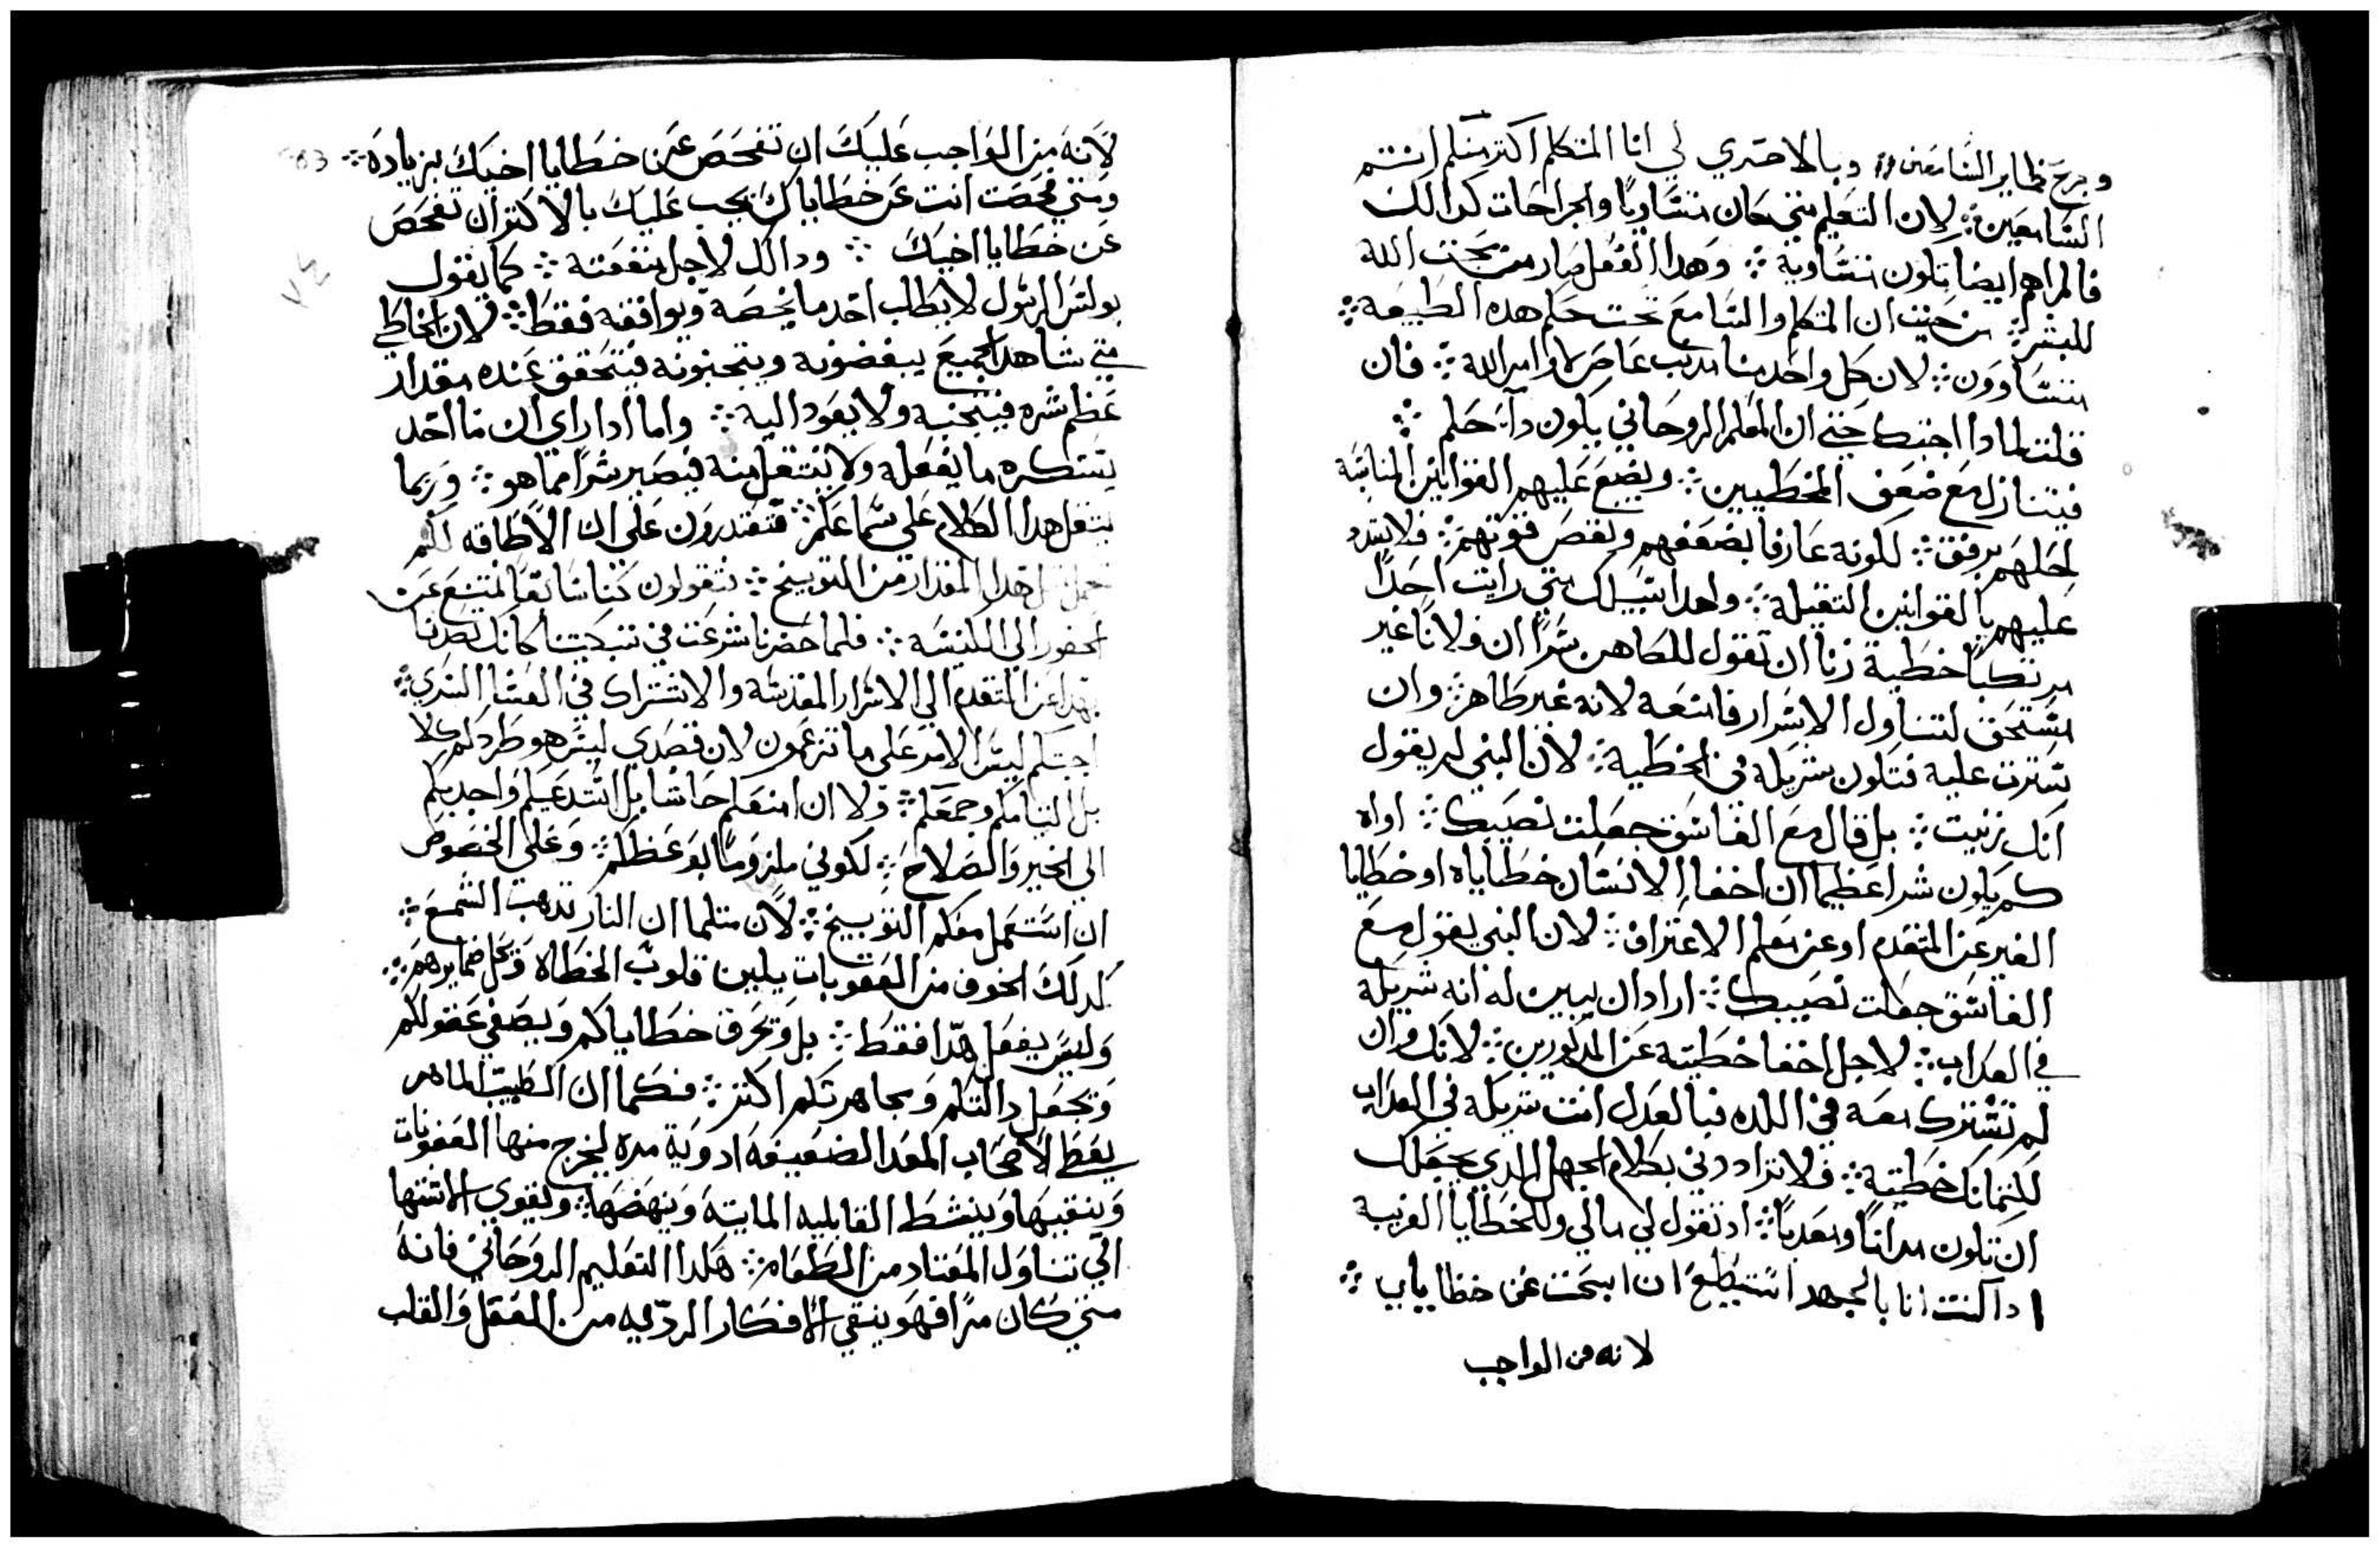 وجرح ضماير السامعين وبالاحري لي انا المتكلم اكتر منكم انتم
السامعين ܀ لان التعليم متي كان متساويًا والجراحات كدالك
فالمراهم ايضا تكون متساوية ܀ وهدا الفعل صار من تحنن الله
للبشر ܀ من حيت ان المتكلم والسامع تحت حكم هده الطبيعة ܀
متساوون ܀ لان كل واحد منا مدنب عاص لاوامر الله ܀ فان
قلت لمادا اجبتك حتي ان المعلم الروحاني يكون دا حكم ܀
فيتنازل مع ضعف المخطيين ܀ ويضع عليهم القوانين المناسبة
لحلهم برفق ܀ لكونه عارفا بضعفهم ونقص قوتهم ܀ فلا يشدد
عليهم بالقوانين التقيلة ܀ واهدا اتيسلك متي رايت احدًا
مرتكبًا خطية زنا ان تقول للكاهن سرًا ان فلانًا غير
مستحق لتناول الاسرار فامنعه لانه غير طاهر ܀ وان
سترت عليه فتكون شريكه في الخطية ܀ لان النبي لم يقول
انك زنيت ܀ بل قال مع الفاسق جعلت نصيبك ܀ اواه
كم يكون شرا عظيما ان اخفا الانسان خطاياه او خطايا
الغير عن المتقدم او عن معلم الاعتراف ܀ لان النبي يقول مع
الفاسق جعلت نصيبك ܀ اراد ان يبين له انه شريكه
في العداب ܀ لاجل اخفا خطيته عن المدكورين ܀ لانك وان
لم تشترك معه في اللده فبالعدل انت شريكه في العداب
لكتمانك خطيته ܀ فلا تراددني بكلام الجهل الدي يجعلك
ان تكون مدانًا ومعدبًا ܀ اد تقول لي مالي وللخطايا الغريبة
ادا كنت انا بالجهد استطيع ان ابحت عن خطاياي ܀
لانه من الواجب
لانه من الواجب عليك ان تفحص عن خطايا اخيك بزيادة ܀
ومتي فحصت انت عن خطاياك يجب عليك بالاكتر ان تفحص
عن خطايا اخيك ܀ ودالك لاجل منفعته ܀ كما يقول
بولس الرسول لا يطلب احد ما يخصه ويوافقه فقط ܀ لان الخاطي
متي شاهد الجميع يبغضونه ويتجنبونه فيتحقق عنده مقدار
عظم شره فيتجنبه ولا يعود اليه ܀ واما ادا راي ان ما احد
يستكره ما يفعله ولا ينتقل منه فيصير شرا مما هو ܀ وربما
يتقل هدا الكلام علي سماعكم ܀ فتقدرون علي ان لا طاقه لكم
تحمل هدا المقدار من التوبيخ ܀ تقولون كنا سابقا نمتنع عن
الحضور الي الكنيسة ܀ فلما حضرنا شرعت في تبكيتنا كانك تصدنا
بهدا عن التقدم الي الاسرار المقدسة والاشتراك في العشا السري ܀
اجبتكم ليس الامر علي ما تزعمون لان قصدي ليس هو طردكم كلا
بل التيامكم وجمعكم ܀ ولا ان امنعكم حاشا بل استدعيكم واجدبكم
الي الخير والصلاح ܀ لكوني ملزومًا بوعظكم ܀ وعلي الخصوص
ان استعمل معكم التوبيخ ܀ لان متلما ان النار تدهب الشمع ܀
كدلك الخوف من العقوبات يلين قلوب الخطاه وتحل ضمايرهم ܀
وليس يفعل هدا فقط ܀ بل وتحرق خطاياكم ويصفي عقولكم
وتجعل دالتكم ومجاهرتكم اكتر ܀ فكما ان الطبيب الماهر
يعطي لاصحاب المعدا الضعيفه ادوية مره ليخرج منها العفونات
وينقيها وينشط القابليه المايتة وينهضها ܀ ويقوي لاشتها
الي تناول المعتاد من الطعام ܀ هكدا التعليم الروحاني فانه
متي كان مرا فهو ينقي الافكار الرديه من العقل والقلب